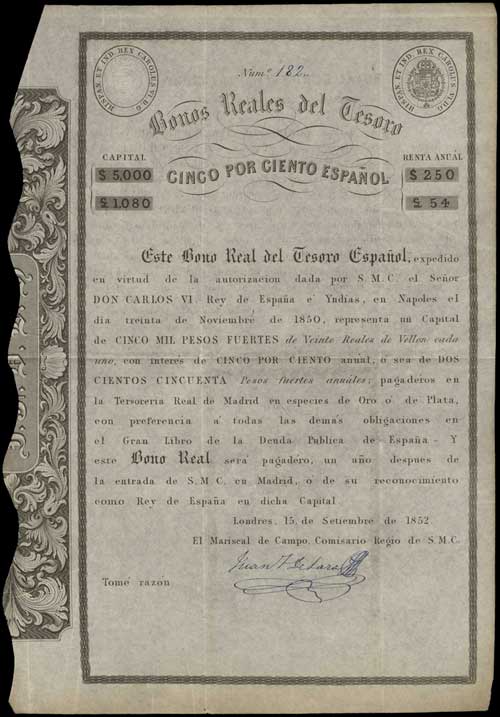 HISPAN. ET IND. REX CAROLUS VI. D.G.
HISPAN. ET IND. REX CAROLUS VI. D.G.
Num.º 182.
Bonos Reales del Tesoro
CINCO POR CIENTO ESPAÑOL
CAPITAL
$ 5,000
£ 1,080
RENTA ANUAL
$ 250
£ 54
Este Bono Real del Tesoro Español, expedido
en virtud de la autorizacion dada por S.M.C. el Señor
DON CARLOS VI, Rey de España é Yndias, en Napoles el
dia treinta de Noviembre de 1850, representa un Capital
de CINCO MIL PESOS FUERTES de Veinte Reales de Vellon cada
uno, con interés de CINCO POR CIENTO anuál, ó sea de DOS
CIENTOS CINCUENTA Pesos fuertes anuales; pagaderos en
la Tersoreria Real de Madrid en especies de Oro ó de Plata,
con preferencia á todas las demás obligaciones en
el Gran Libro de la Deuda Publica de España - Y
este Bono Real será pagadero, un año despues de
la entrada de S.M.C. en Madrid, ó de su reconocimiento
como Rey de España en dicha Capital.
Londres, 15, de Setiembre de 1852.
El Mariscal de Campo, Comisario Regio de S.M.C.
Juan
Tomé razon